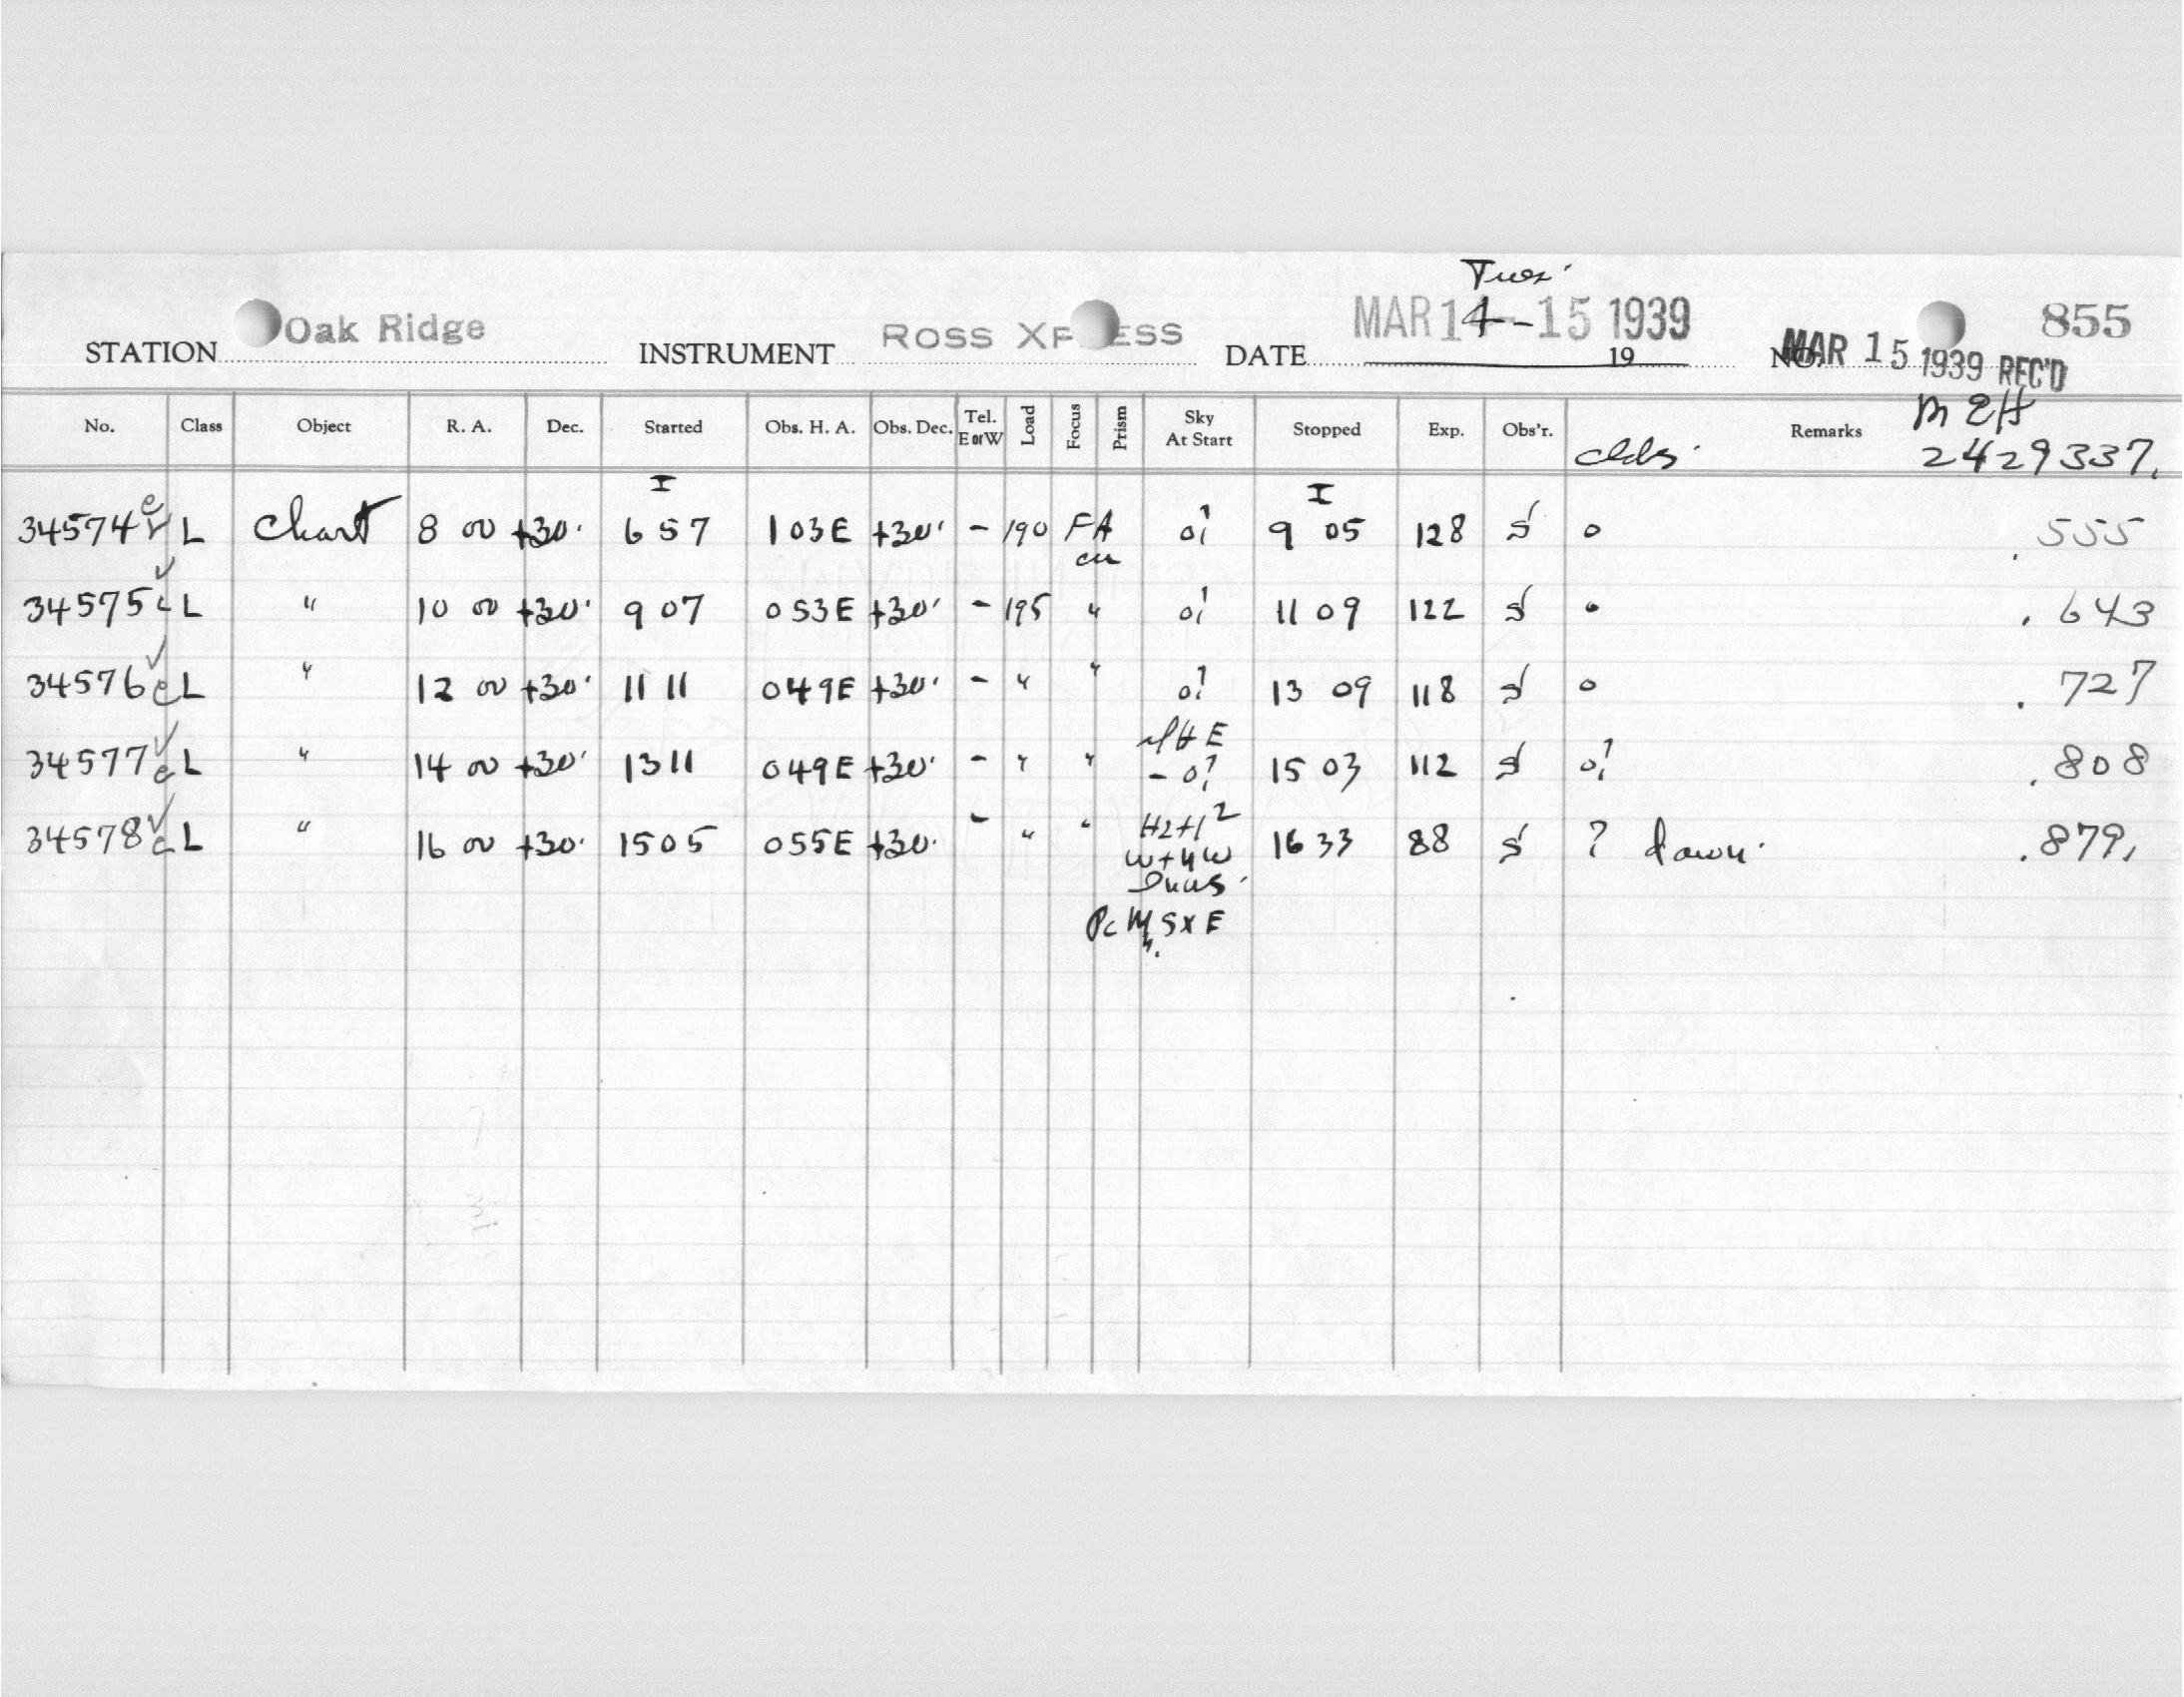 Tues.
STATION Oak Ridge INSTRUMENT ROSS XPRESS DATE MAR 14-15 1939 19 NO. 855
MAR 15 1939 REC'D
MEH
No. Class Object R. A. Dec. Started Obs. H. A. Obs. Dec. Tel. E or W Load Focus Prism Sky At Start Stopped Exp. Obs'r. Remarks
clds. 2429337.
I I
34574 L Chart 8 00 +30. 6 57 103E +30' - 190 FA 9 05 128 S o .555
34575 L " 10 00 +30' 9 07 053E +30' - 195 " 11 09 122 S o .643
34576 L " 12 00 +30' 11 11 049E +30' - " " o? 13 09 118 S o .727
34577 L " 14 00 +30' 13 11 049E +30' - " " - o? 15 03 112 S o? .808
34578 L " 16 00 +30. 15 05 055E +30. - " " 16 33 88 S ? dawn. .879